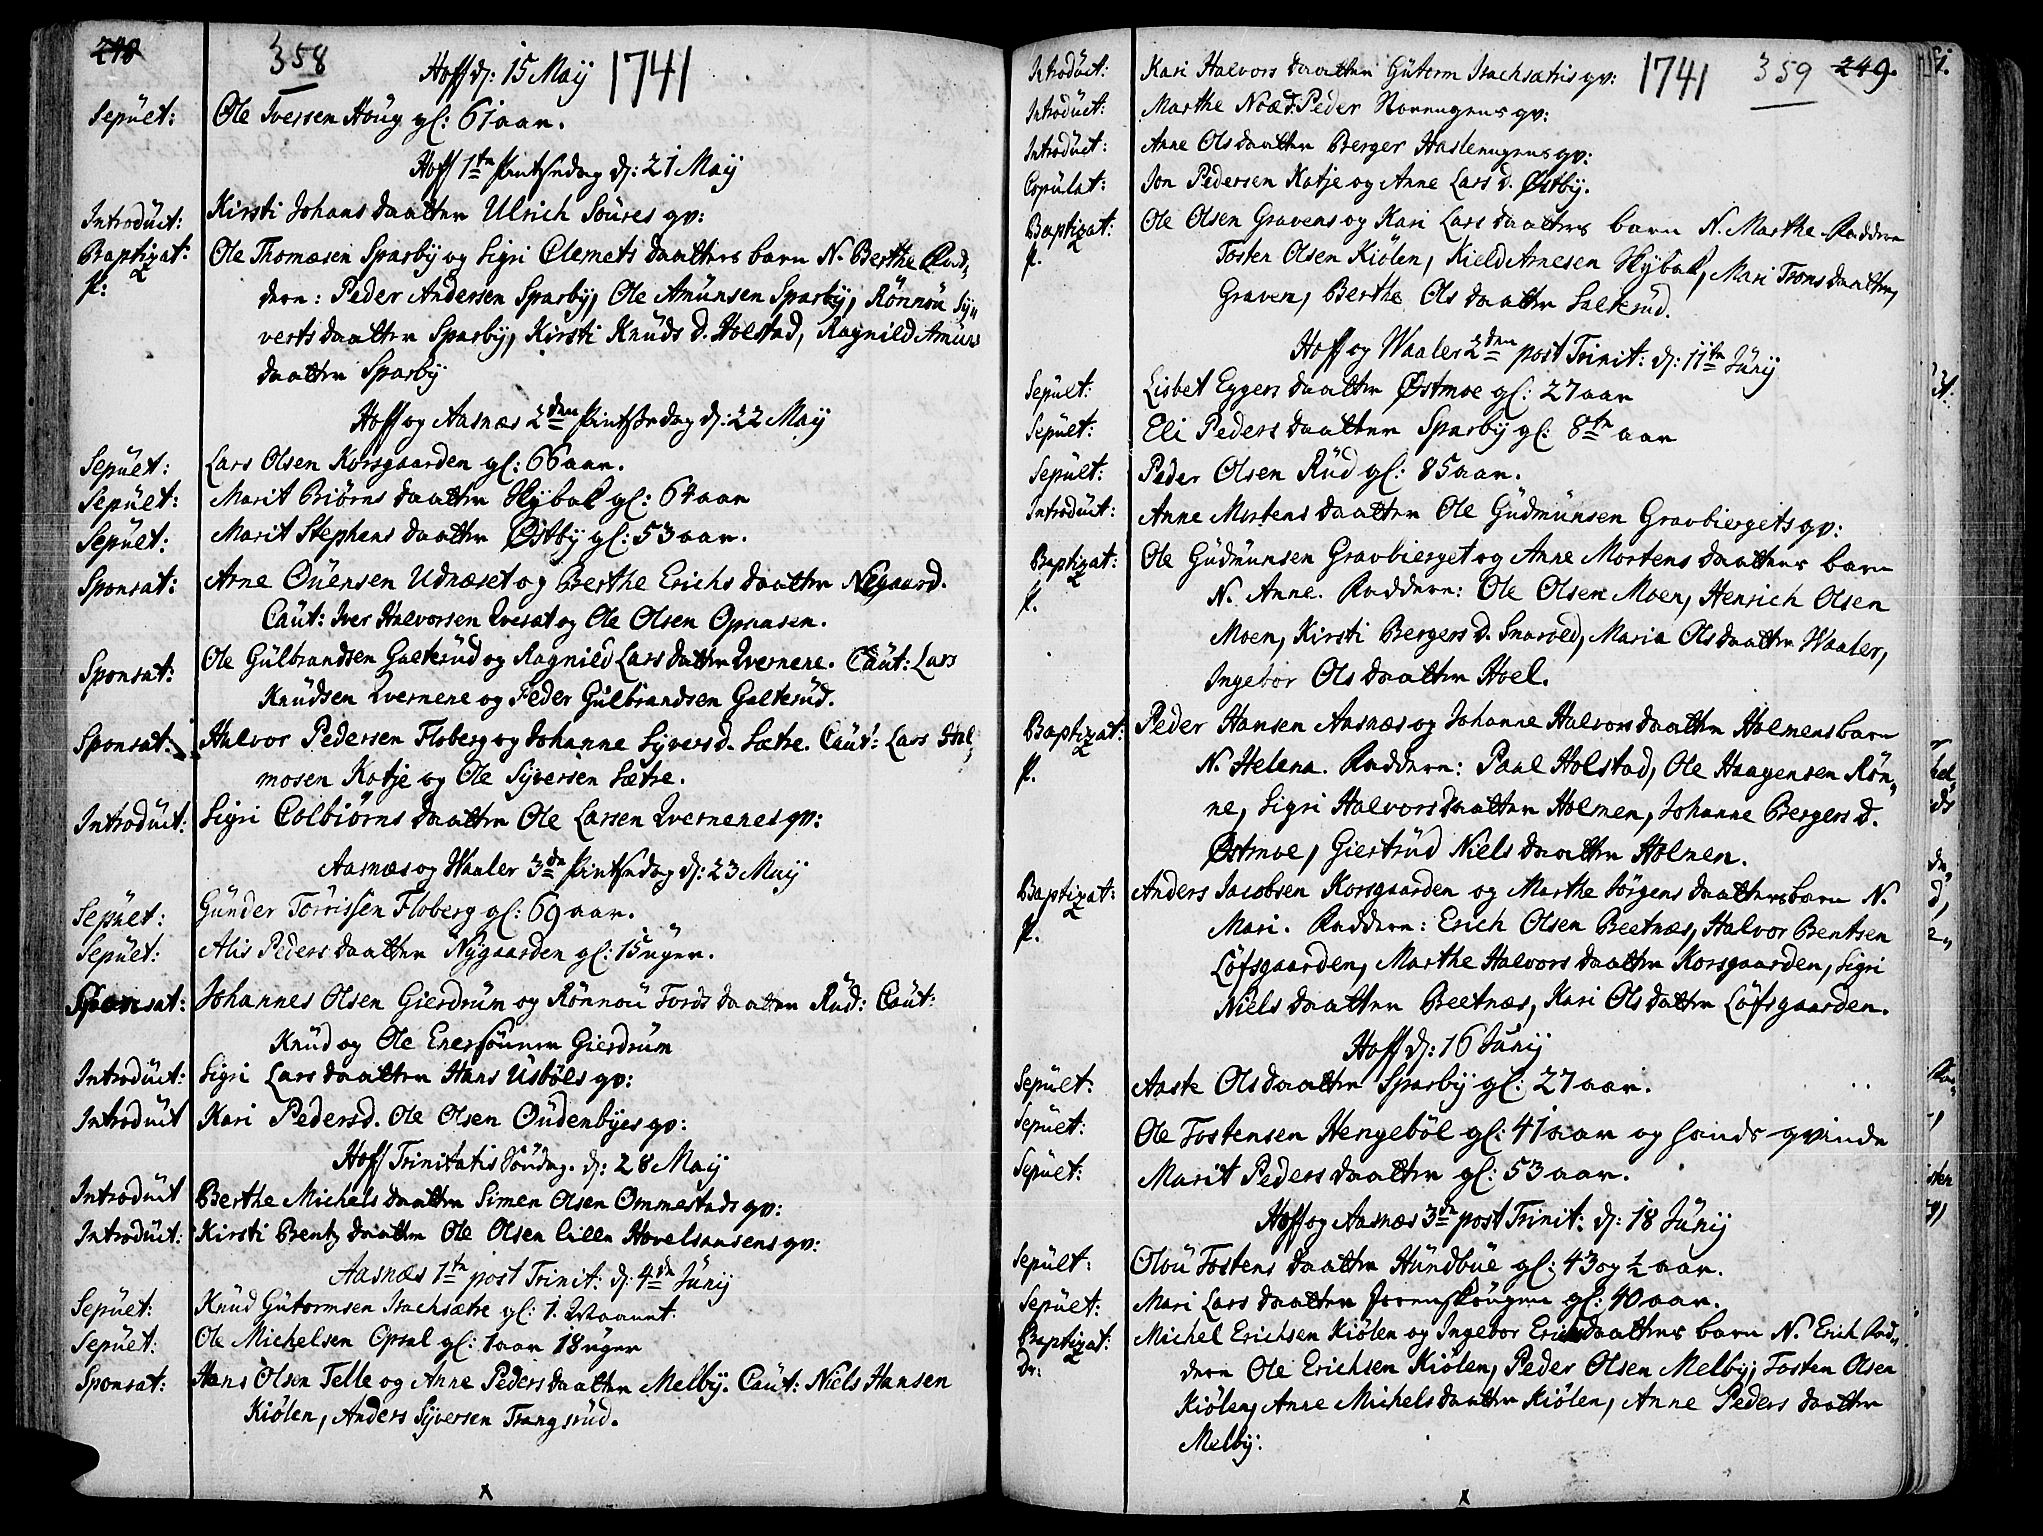 248
358
Hoff d: 15 Maij 1741
Sepult: Ole Iversen Houg gl: 61 aar.
Hoff 1te Pintsedag d: 21 Maij
Introduct: Kirsti Johans daatter Ulrich Soures qv:
Baptizat: Ole Thomæsen Sparby og Sigri Clemets daatters barn N. Berthe Fad,
f: dere: Peder Andersen Sparby, Ole Amunsen Sparby, Rönnou Sy,,
verts daatter Sparby, Kirsti Knuds d. Holstad, Ragnild Amuns
daatter Sparby
Hoff og Aasnæs 2den Pintsedag d: 22 Maij
Sepult: Lars Olsen Korsgaarden gl: 66 aar.
Sepult: Marit Biörns daatter Skybak gl: 64 aar
Sepult: Marit Stephens daatter Østby gl: 53 aar.
Sponsat: Arne Ouensen Udnæset og Berthe Erichs daatter Nÿgaard.
Caut: Iver Halvorsen Qvesæt og Ole Olsen Opaasen.
Sponsat: Ole Gulbrandsen Galterud og Ragnild Lars datter Qvernene. Caut: Lars
Knudsen Qvernene og Peder Gulbrandsen Galterud.
Sponsat: Halvor Pedersen Floberg og Johanne Syvers d. Sætre. Caut: Lars Hal,
mosen Kotje og Ole Syversen Sætre.
Introduct: Sigri Colbiörns daatter Ole Larsen Qvernenes qv:
Aasnæs og Waaler 3de Pintsedag d: 23 Maij
Sepult: Gunder Torrissen Floberg gl: 69 aar.
Sepult: Alis Peders daatter Nygaarden gl: 15 uger.
Sponsat: Johannes Olsen Gierdrum og Rönnou Tords daatter Rud: Caut:
Knud og Ole Enersönner Gierdrum
Introduct: Sigri Lars daatter Hans Usböls qv:
Introduct Kari Peders d. Ole Olsen Oudenbyes qv:
Hoff Trinitatis Söndag. d: 28 Maij
Introduct Berthe Michels daatter Simen Olsen Ommestads qv:
Introduct: Kirsti Bentz daatter Ole Olsen lille Hovelsaasens qv:
Aasnæs 1te post Trinit: d: 4de Junij
Sepult: Knud Gutormsen Isachsætre gl: 1. Maanet.
Sepult: Ole Michelsen Opsal gl: 1 aar 18 uger
Sponsat: Hans Olsen Telle og Anne Peders daatter Melby. Caut: Niels Hansen
Kiölen, Anders Syversen Trangsrud.
x
1741 359 249.
Introduct: Kari Halvors daatter Guterm Isachsætris qv:
Introduct: Marthe N: ad: Peder Norengens qv:
Introduct: Anne Ols daatter Berger Haslerengens qv:
Copulat: Jon Pedersen Kotje og Anne Lars d. Østby.
Baptizat: Ole Olsen Gravens og Kari Lars daatters barn N. Marthe. Faddere
f. Tosten Olsen Kiölen, Kield Arnesen Skybak, Mari Trons daatter,
Graven, Berthe Ols daatter Salterud.
Hoff og Waaler 2den post Trinit: d: 11te Junij
Sepult: Lisbet Eggers daatter Østmoe gl: 27 aar
Sepult: Eli Peders daatter Sparby gl: 8te aar
Sepult: Peder Olsen Rud gl: 85 aar.
Introduct: Anne Mortens daatter Ole Gudmunsen Gravbiergets qv:
Baptizat: Ole Gudmunsen Gravbierget og Anne Mortens daatters barn
f. N. Anne. Faddere: Ole Olsen Moen, Henrich Olsen
Moen, Kirsti Bergers d. Snaroed, Maria Ols daatter Waaler,
Ingebor Ols daatter Hoel.
Baptizat: Peder Hansen Aasnæs og Johanne Halvors daatter Holmens barn
f. N. Helena. Faddere: Paal Holstad, Ole Haagensen Rön,
ne, Sigri Halvors daatter Holmen, Johanne Bergers d.
Østmoe, Giertrud Niels daatter Holmen.
Baptizat: Anders Jacobsen Korsgaarden og Marthe Jörgens daatters barn N.
f. Mari. Faddere: Erich Olsen Beetnæs, Halvor Bentsen
Löfsgaarden, Marthe Halvors daatter Korsgaarden, Sigri
Niels daatter Beetnæs, Kari Ols datter Löfsgaarden.
Hoff d: 16 Junij
Sepult: Aaste Ols daatter Sparby gl: 27 aar.
Sepult: Ole Tostensen Hengeböl gl: 41 aar og hands qvinde
Sepult: Marit Peders daatter gl: 53 aar.
Hoff og Aasnæs 3de post Trinit: d: 18 Junij
Sepult: Olou Tostens daatter Hundbue gl: 43 og ½ aar.
Sepult: Mari Lars daatter gl: 40 aar.
Baptizat: Michel Erichsen Kiölen og Ingebor Erichs daatters barn N. Erich. Fad,,
dr: dere Ole Erichsen Kiölen, Peder Olsen Melby, Tosten Olsen
Kiölen, Anne Michels daatter Kiölen, Anne Peders daatter
Melby:
x